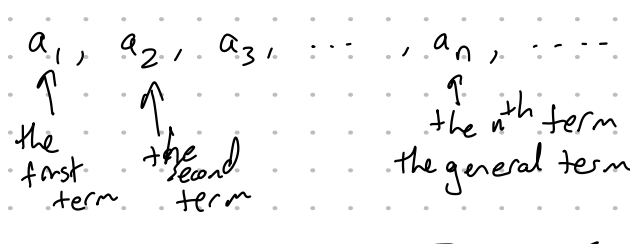 a₁, a₂, a₃, ... , aₙ, ....
the first term
the second term
the nth term
the general term